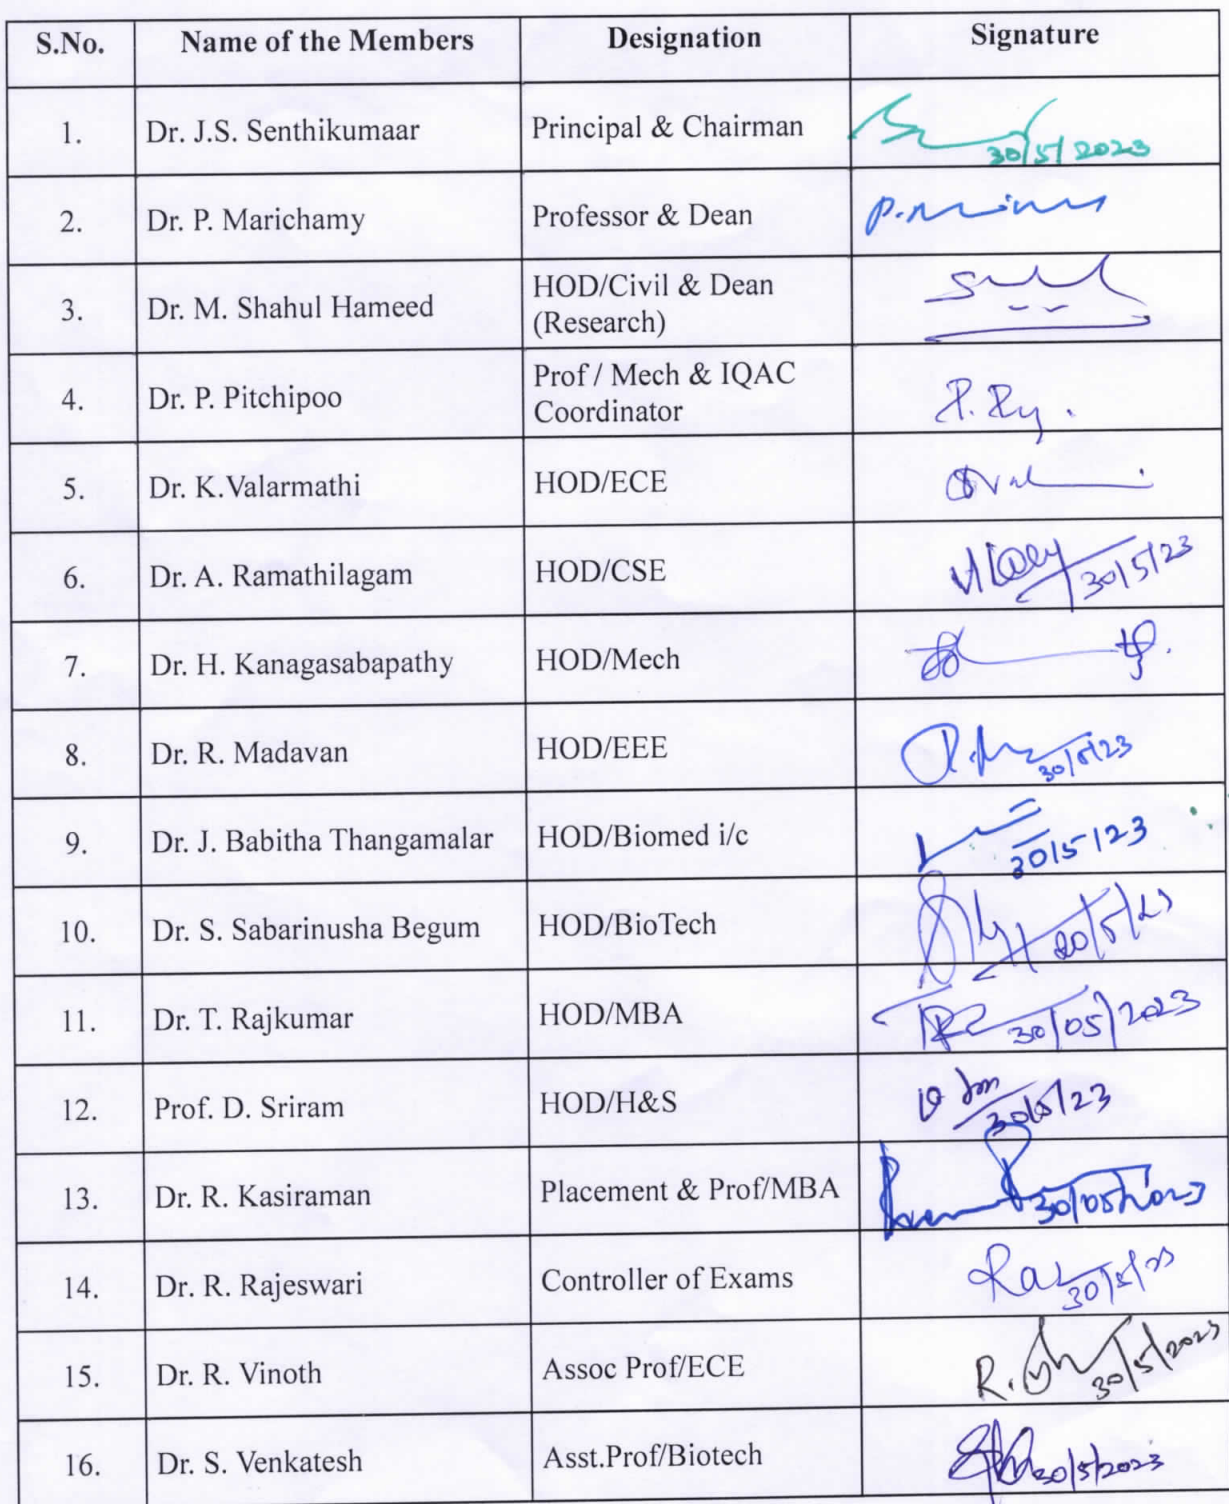 S.No. Name of the Members Designation Signature
1. Dr. J.S. Senthikumaar Principal & Chairman 30/5/2023
2. Dr. P. Marichamy Professor & Dean
3. Dr. M. Shahul Hameed HOD/Civil & Dean
(Research)
4. Dr. P. Pitchipoo Prof / Mech & IQAC
Coordinator
5. Dr. K.Valarmathi HOD/ECE
6. Dr. A. Ramathilagam HOD/CSE 30/5/23
7. Dr. H. Kanagasabapathy HOD/Mech
8. Dr. R. Madavan HOD/EEE 30/5/23
9. Dr. J. Babitha Thangamalar HOD/Biomed i/c 30/5/23
10. Dr. S. Sabarinusha Begum HOD/BioTech
11. Dr. T. Rajkumar HOD/MBA 30/05/2023
12. Prof. D. Sriram HOD/H&S 30/5/23
13. Dr. R. Kasiraman Placement & Prof/MBA 30/05/2023
14. Dr. R. Rajeswari Controller of Exams 30/5/23
15. Dr. R. Vinoth Assoc Prof/ECE 30/5/2023
16. Dr. S. Venkatesh Asst.Prof/Biotech 30/5/2023